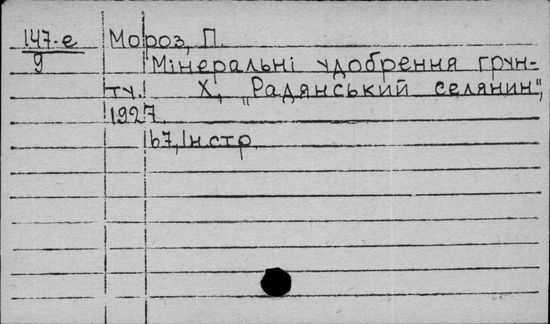 147-е Мороз, П.
9 Мінеральні удобрення грун-
ту. Х, „Радянський селянин",
1927
67, Інстр.